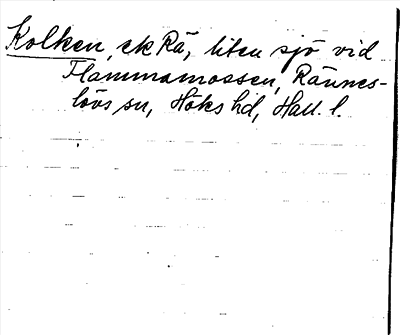 Kolken, ek Rä, liten sjö vid
Flammamossen, Rännes-
lövs sn, Höks hd, Hall. l.